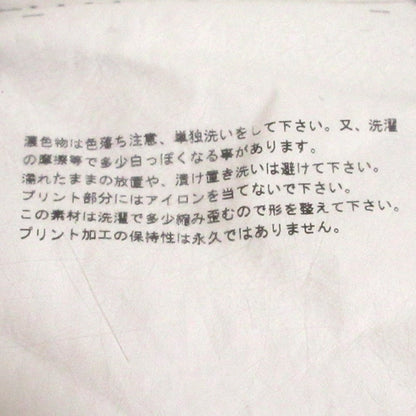 濃色物は色落ち注意、単独洗いをして下さい。又、洗濯
の摩擦等で多少白っぽくなる事があります。
濡れたままの放置や、漬け置き洗いは避けて下さい。
プリント部分にはアイロンを当てないで下さい。
この素材は洗濯で多少縮み歪むので形を整えて下さい。
プリント加工の保持性は永久ではありません。